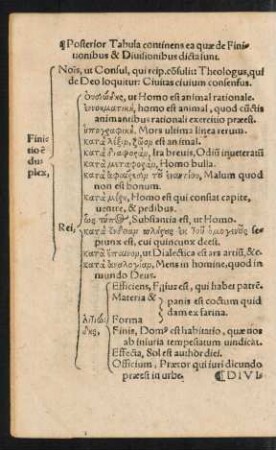 ¶Posterior Tabula continens ea quæ de Finitionibus & Diuisionibus dicta sunt.
Nois, ut Consul, qui reip. cõsulit: Theologus, qui
de Deo loquitur: Ciuitas ciuium consensus.
οὐσιώδης, ut Homo est animal rationale.
ἐννοηματική, homo est animal, quod cũctis
animantibus rationali exercitio præest.
ὑπογραφική, Mors ultima linea rerum.
κατὰ λέξιν, ζῶον est animal.
κατὰ διαφοράν, Ira breuis, Odiũ inueteratũ
κατὰ μεταφοράν, Homo bulla.
κατὰ ἀφαίρεσιν τοῦ ἐναντίου, Malum quod
non est bonum.
Finitio ẽ duplex,
κατὰ μέρη, Homo est qui constat capite,
uentre, & pedibus.
Rei,
ὡς τύπῳ, Substantia est, ut Homo.
κατὰ ἔνδειαν πλήρους ἐκ τοῦ ὁμογενοῦς septunx est, cui quincunx deest.
κατὰ ἔπαινον, ut Dialectica est ars artiũ, &c.
κατὰ ἀναλογίαν, Mens in homine, quod in
mundo Deus.
Efficiens, Filius est, qui habet patrẽ.
Materia &
panis est coctum quiddam ex farina.
αἰτιώδης,
Forma
Finis, Domꝰ est habitatio, quæ nos
ab iniuria tempestatum uindicat.
Effecta, Sol est author diei.
Officium, Prætor qui iuri dicundo
præest in urbe.
¶DIVI